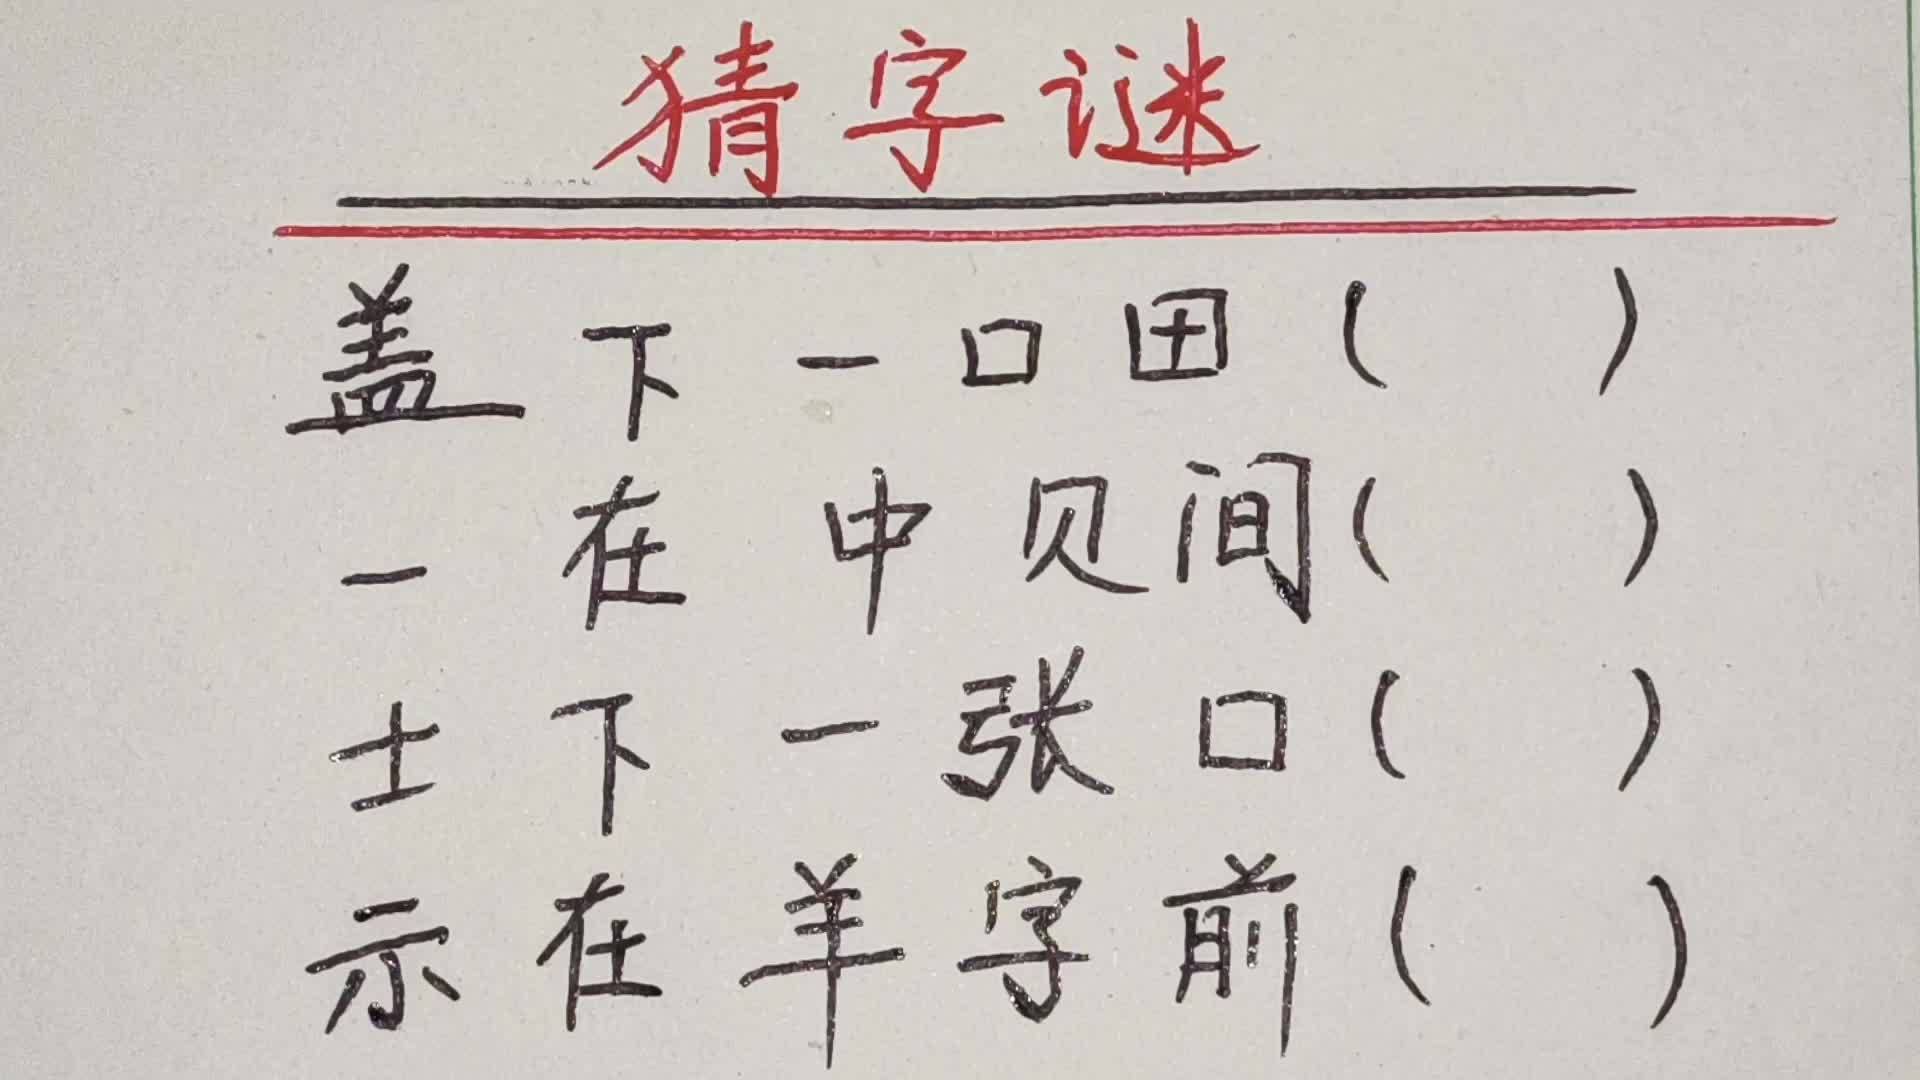 猜字谜
盖下一口田(    )
一在中贝间(    )
士下一张口(    )
示在羊字前(    )